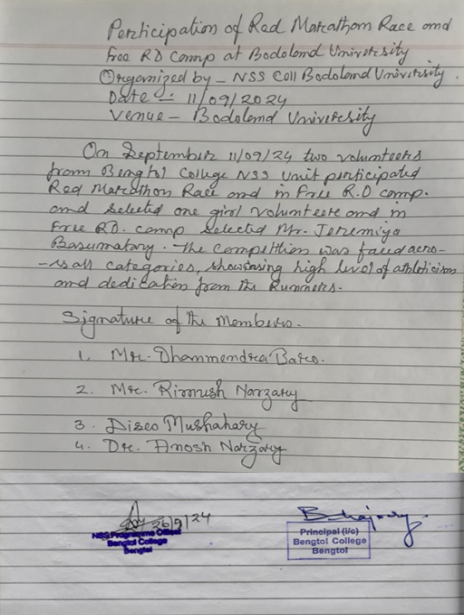 Participation of Red Marathom Race and
free RD Camp at Bodoland University
Organized by - NSS Cell Bodoland University.
Date - 11/09/2024
Venue - Bodoland University
On September 11/09/24 two volunteers
from Bengtol College NSS Unit participated
Red Marathon Race and in Free R.D comp.
and selected one girl volunteere and in
Free RD. camp selected Mr. Jeremiya
Basumatary. The competition was faced acro-
-ss all categories, showcasing high level of athleticism
and dedication from the Runners.
Signature of the Members.
1. Mr. Dhammendra Baro.
2. Mr. Rimush Narzary
3. Disco Mushahary
4. Dr. Anosh Narzary
26/9/24
NSS Programme Officer
Bengtol College
Bengtol
Principal (I/c)
Bengtol College
Bengtol